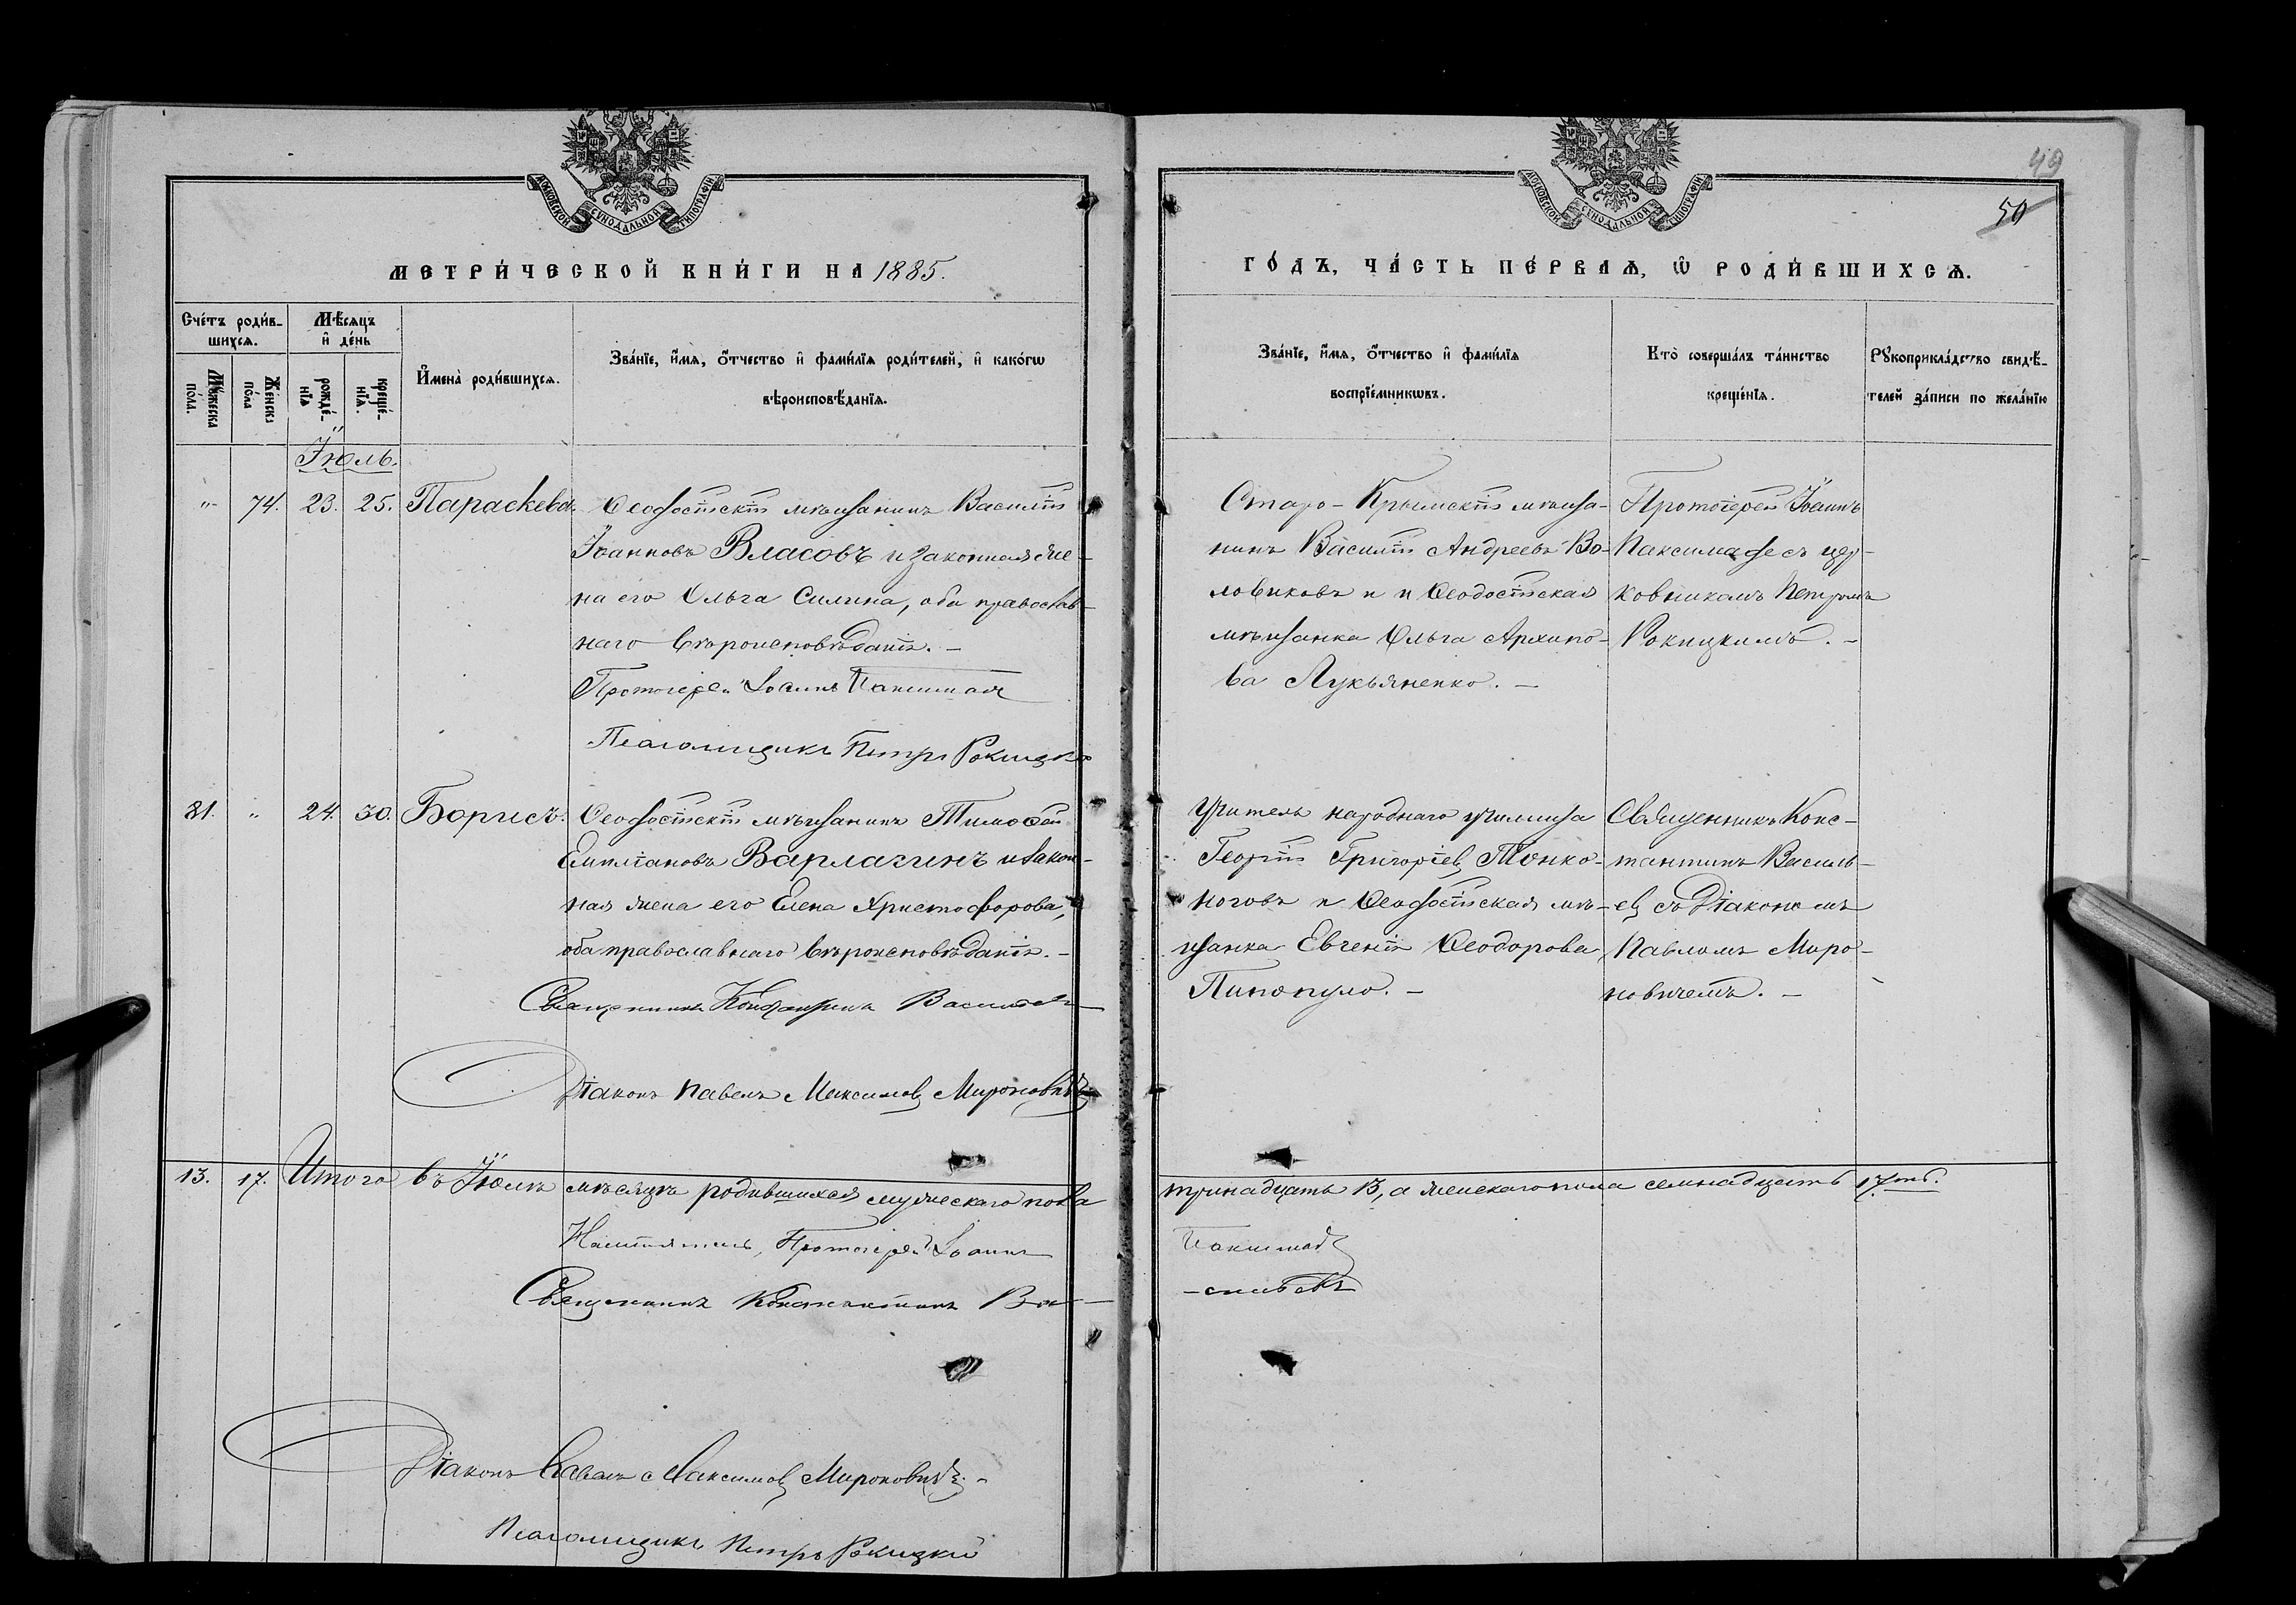 МОСКОВСКОЙ СѴНОДАЛЬНОЙ ТИПОГРАФІИ
МЕТРИ́ЧЕСКОЙ КНИ́ГИ НА 1885.
Сче́тъ роди́в-
шихсѧ.
Мѣ́сѧцъ
и҆ де́нь
Мꙋ́жеска
по́ла.
Же́нска
по́ла
рожде́-
нїѧ
креще́-
нїѧ.
И҆мена̀ роди́вшихсѧ.
Зва́нїе, и҆́мѧ, ѻ҆́тчество и҆ фами́лїѧ роди́телей, и҆ како́гѡ
вѣроисповѣ́данїѧ.
Іюль.
" 74. 23. 25. Параскева. Ѳеодосійскій мѣщанинъ Василій
Іоанновъ Власовъ и законная же-
на его Ольга Силина, оба православ-
наго вѣроисповѣданія. –
Протоіерей Іоаннъ Паксимадъ
Псаломщикъ Петръ Рокицкій
31. " 24. 30. Борисъ. Ѳеодосійскій мѣщанинъ Тимоѳей
Емиліановъ Варлагинъ и закон-
ная жена его Елена Христофорова,
оба православнаго вѣроисповѣданія. –
Священникъ Константинъ Васильевъ
Діаконъ Павелъ Максимовъ Мироновичъ
13. 17. Итого въ Іюлѣ мѣсяцѣ родившихся мужескаго пола
Настоятель, Протоіерей Іоаннъ
Священникъ Константинъ Ва-
Діаконъ Павелъ Максимовъ Мироновичъ. –
Псаломщикъ Петръ Рокицкій
МОСКОВСКОЙ СѴНОДАЛЬНОЙ ТИПОГРАФІИ
49
50
ГО́ДЪ, ЧА́СТЬ ПЕ́РВАѦ, Ѡ҆ РОДИ́ВШИХСѦ.
Зва́нїе, и҆́мѧ, ѻ҆́тчество и҆ фами́лїѧ
воспрїе́мникѡвъ.
Кто̀ соверша́лъ та́инство
креще́нїѧ.
Рꙋкоприкла́дство свидѣ́-
телей за́писи по жела́нїю
Старо-Крымскій мѣща-
нинъ Василій Андреевъ Во-
ловиковъ и и Ѳеодосійская
мѣщанка Ольга Архипо-
ва Лукьяненко. –
Протоіерей Іоаннъ
Паксимаде съ цер-
ковникомъ Петромъ
Рокицкимъ. –
Учитель народнаго училища
Георгій Григоріевъ Тонко-
ноговъ и Ѳеодосійская мѣ-
щанка Евгенія Ѳеодорова
Пипопуло. –
Священникъ Конс-
тантинъ Василь-
евъ съ Діакономъ
Павломъ Миро-
новичемъ. –
тринадцать 13, а женскаго пола семнадцать 17ть.
Паксимадъ
-сильевъ